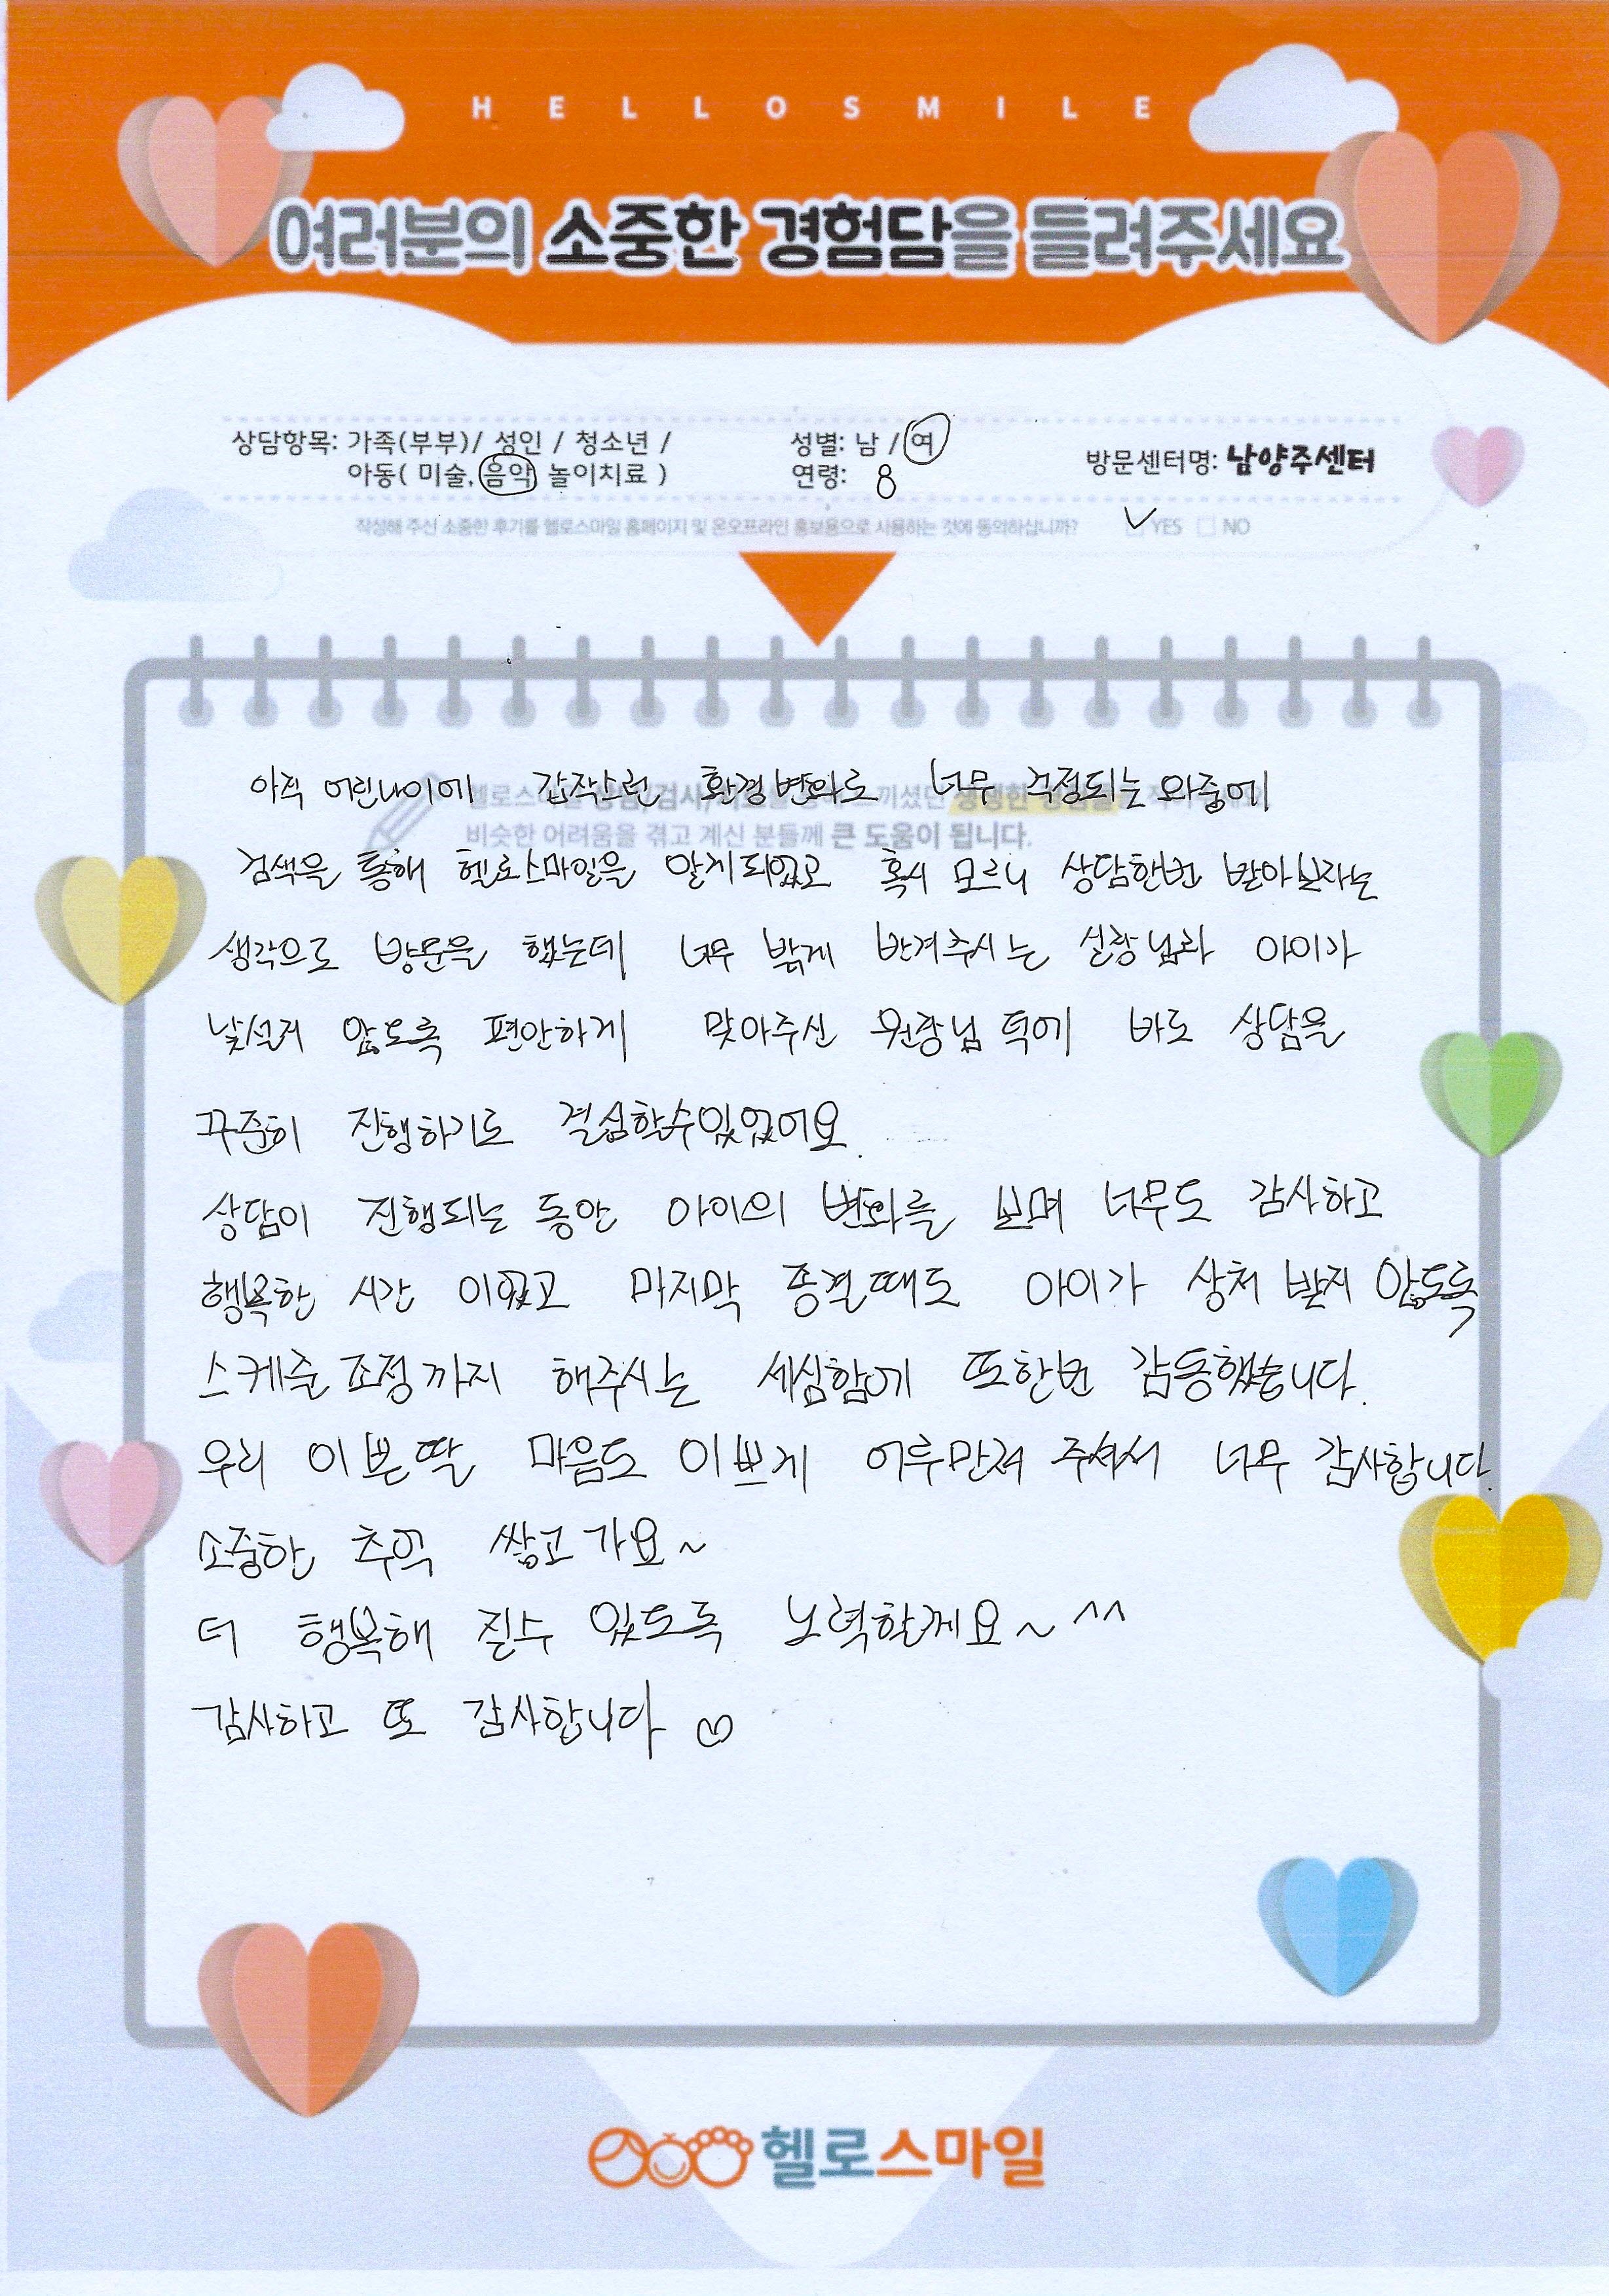 HELLOSMILE
여러분의 소중한 경험담을 들려주세요
상담항목: 가족(부부)/ 성인 / 청소년 /
아동( 미술, 음악, 놀이치료 )
성별: 남 / 여
연령: 8
방문센터명: 남양주센터
작성해 주신 소중한 후기를 헬로스마일 홈페이지 및 온오프라인 홍보용으로 사용하는 것에 동의하십니까? ✓ YES □ NO
아직 어린나이에 갑작스런 환경변화로 너무 걱정되는 와중에
헬로스마일 상담/검사/ 끼셨던 생생한
비슷한 어려움을 겪고 계신 분들께 큰 도움이 됩니다.
검색을 통해 헬로스마일을 알게되었고 혹시 모르니 상담한번 받아보자는
생각으로 방문을 했는데 너무 밝게 반겨주시는 실장님과 아이가
낯설지 않도록 편안하게 맞아주신 원장님 덕에 바로 상담을
꾸준히 진행하기로 결심할수있었어요.
상담이 진행되는 동안 아이의 변화를 보며 너무도 감사하고
행복한 시간 이었고 마지막 종결때도 아이가 상처 받지 않도록
스케줄 조정까지 해주시는 세심함에 또한번 감동했습니다.
우리 이쁜딸 마음도 이쁘게 어루만져 주셔서 너무 감사합니다.
소중한 추억 쌓고가요~
더 행복해 질수 있도록 노력할께요~^^
감사하고 또 감사합니다 ♡
헬로스마일